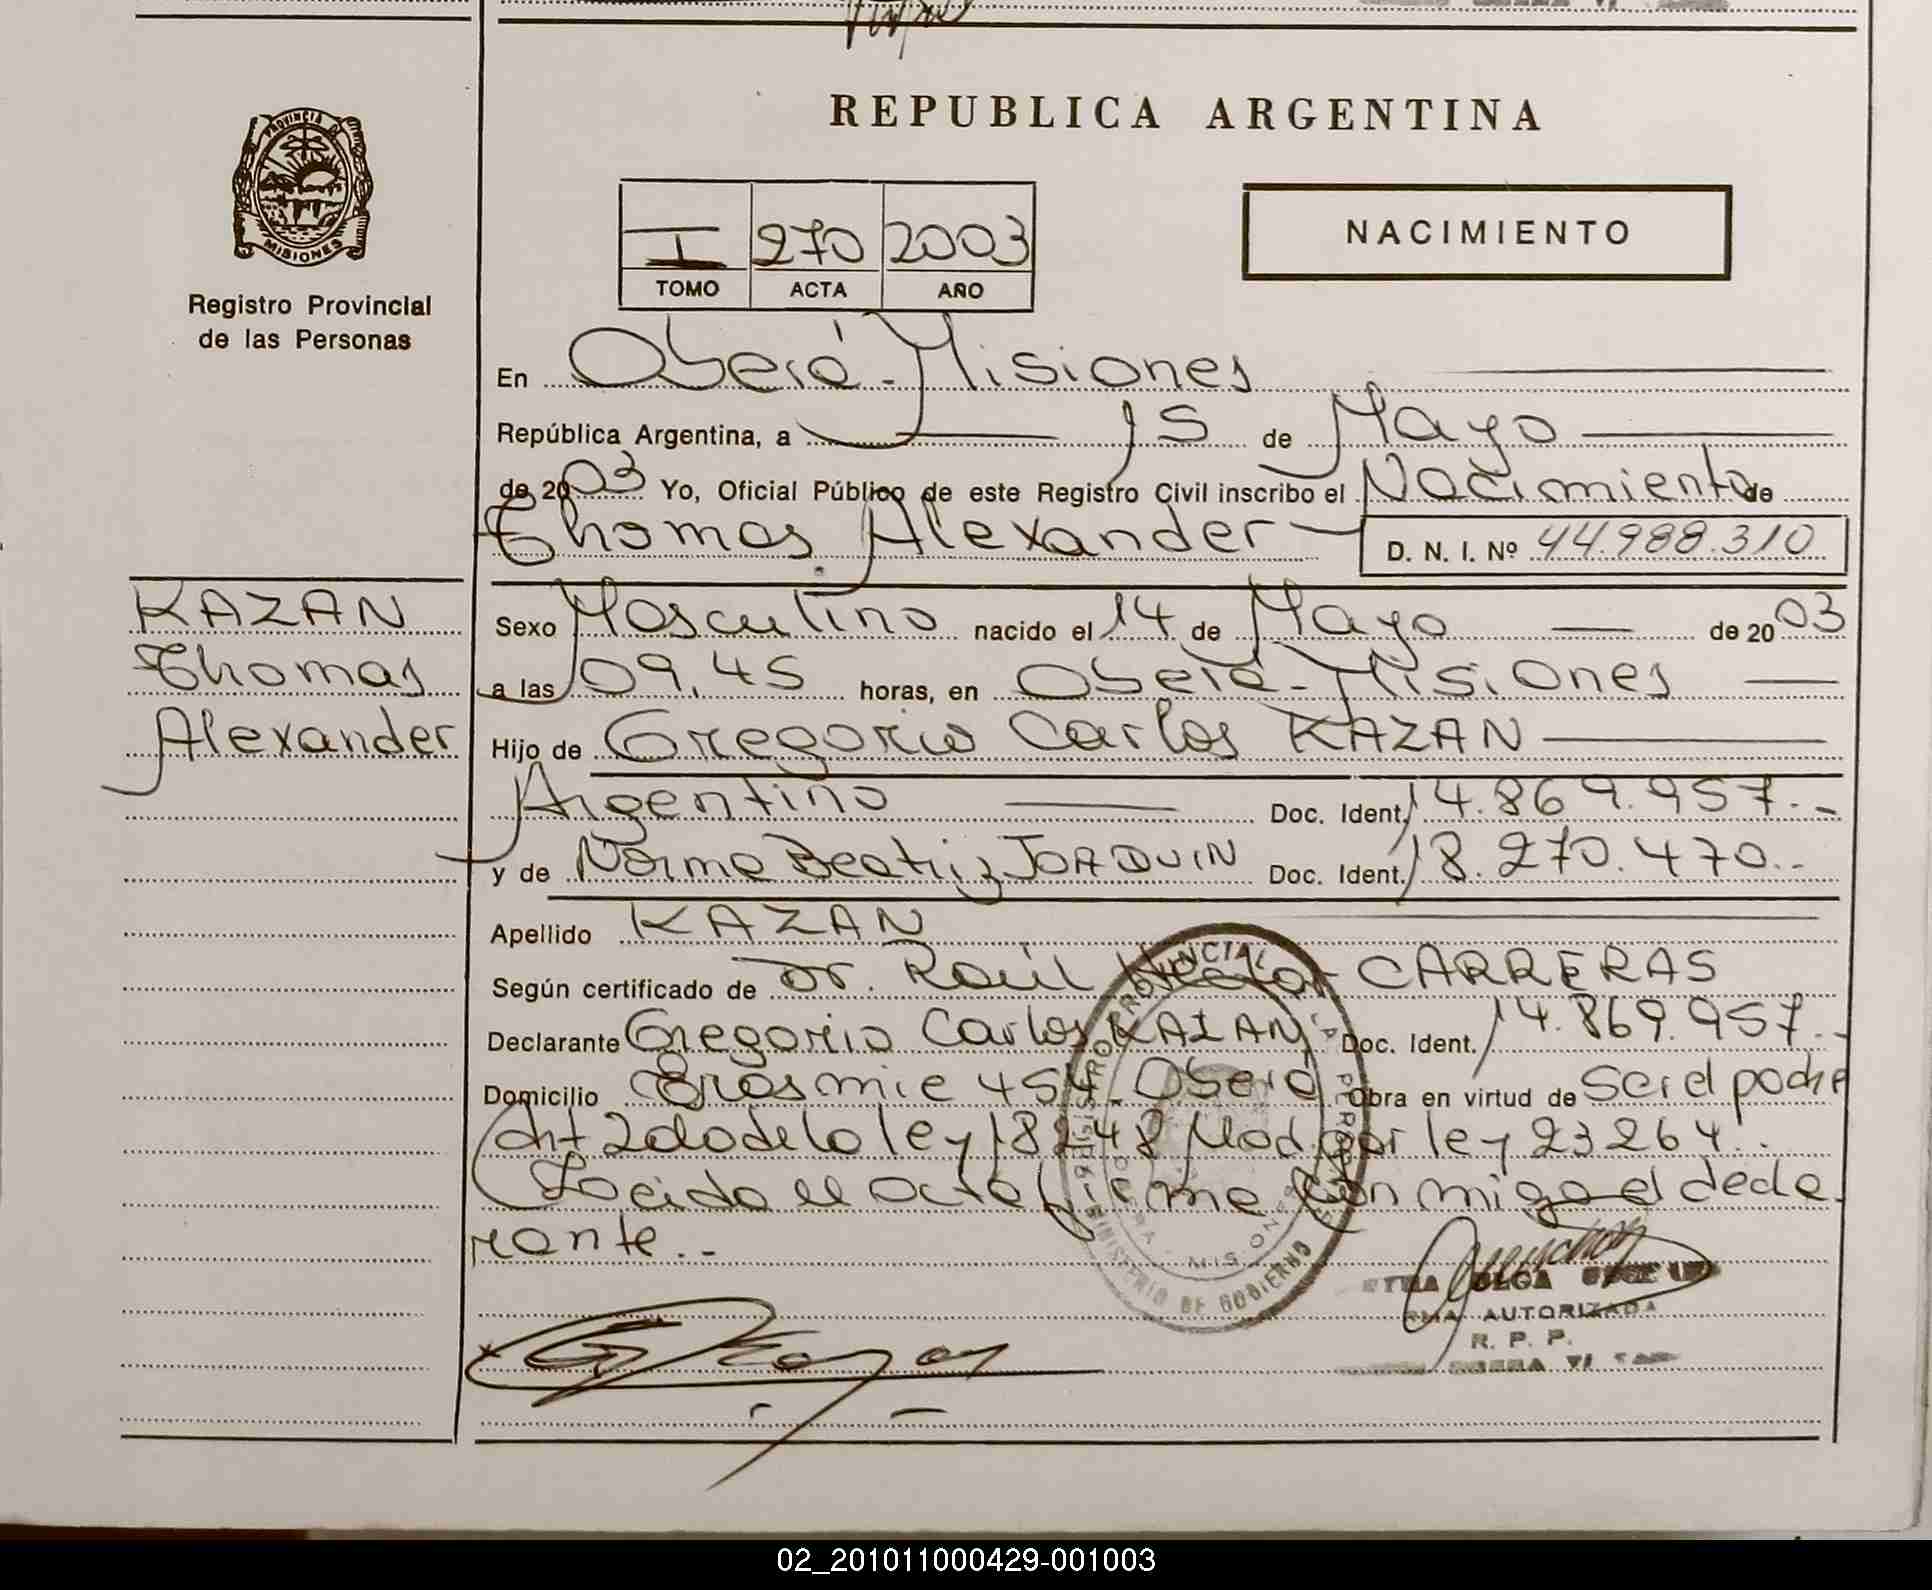 PROVINCIA DE
MISIONES
Registro Provincial
de las Personas
REPUBLICA ARGENTINA
I 270 2003
TOMO ACTA AÑO
NACIMIENTO
En Oberá - Misiones
República Argentina, a 15 de Mayo
de 2003 Yo, Oficial Público de este Registro Civil inscribo el Nacimiento de
Thomas Alexander D. N. I. Nº 44.988.310
KAZAN
Thomas
Alexander
Sexo Masculino nacido el 14 de Mayo de 2003
a las 09,45 horas, en Oberá - Misiones
Hijo de Gregorio Carlos KAZAN
Argentino Doc. Ident. 14.869.957.-
y de Norma Beatriz JOAQUIN Doc. Ident. 18.270.470.-
Apellido KAZAN
Según certificado de Dr. Raúl Hector CARRERAS
Declarante Gregorio Carlos KAZAN Doc. Ident. 14.869.957.-
Domicilio 454. Oberá Obra en virtud de Ser el padre
Art 2do de la ley 18248 Mod. por ley 23264.-
Leida el acta firma conmigo el decla
rante.-
REGISTRO PROVINCIAL DE LAS PERSONAS
MINISTERIO DE GOBIERNO
OBERA - MISIONES
OLGA
AUTORIZADA
R. P. P.
02_201011000429-001003